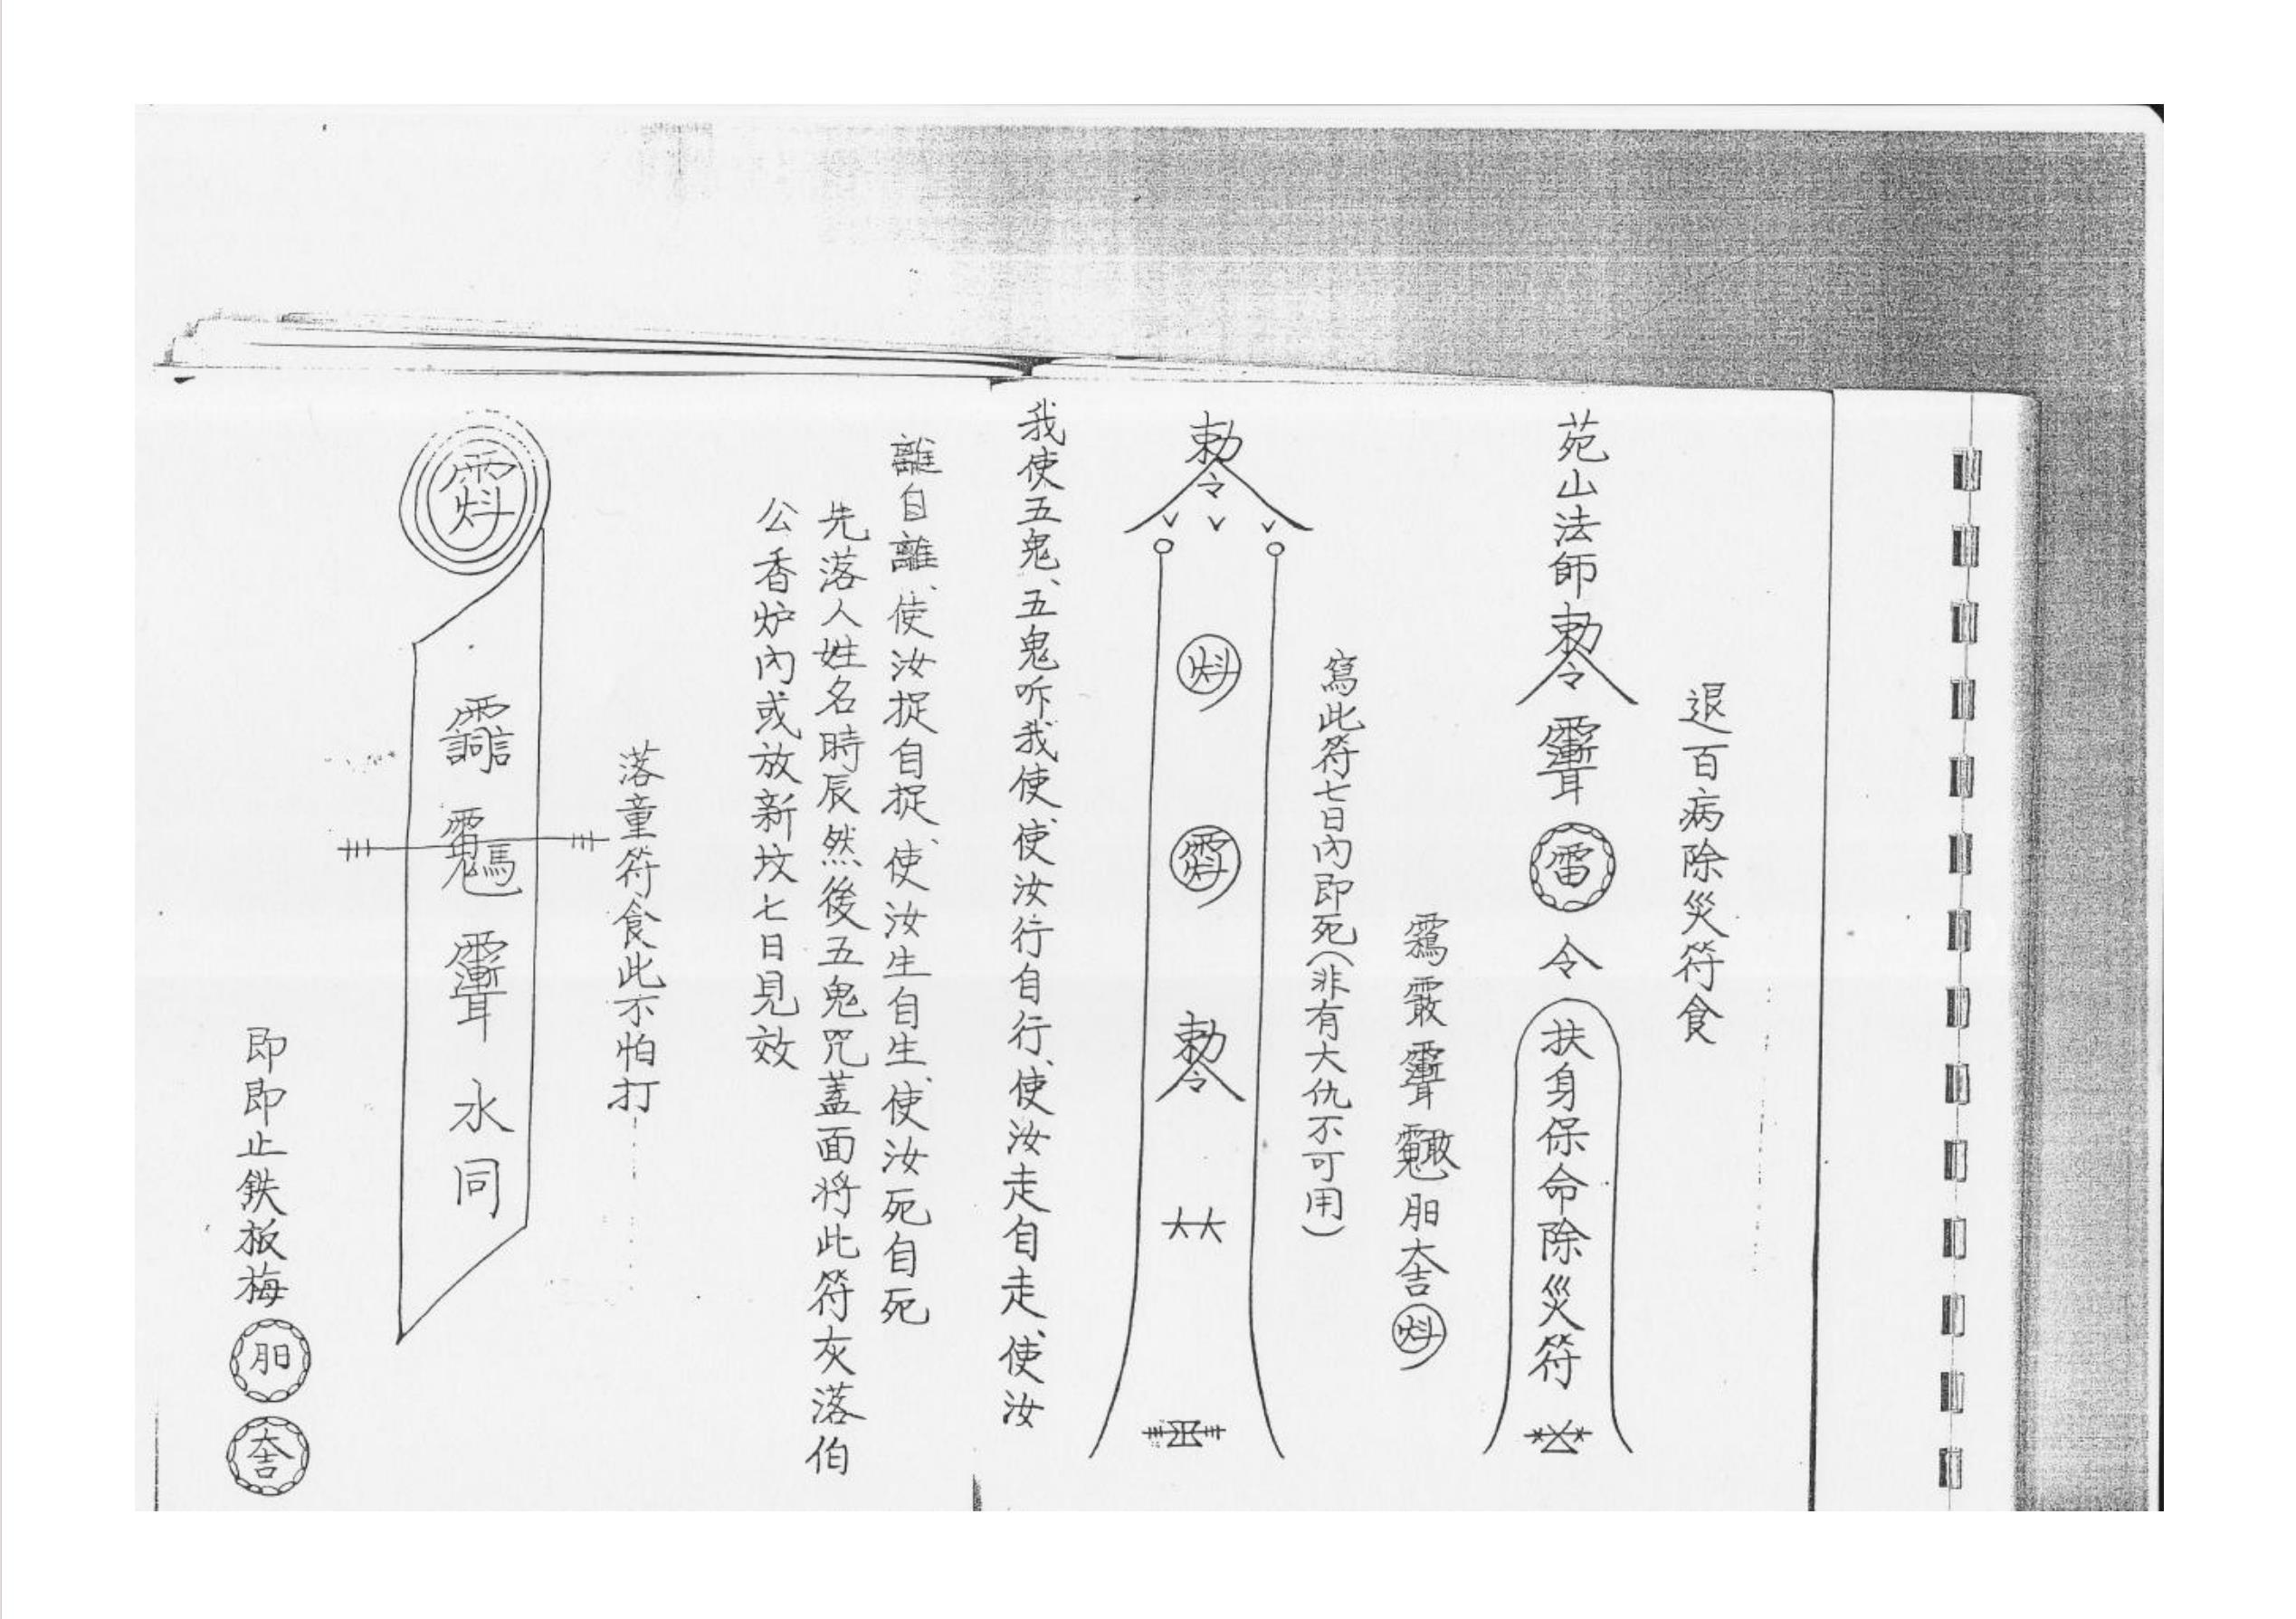 退百病除災符食
苑山法師勅令
雷
令
扶身保命除災符
寫此符七日內即死(非有大仇不可用)
勅令
勅令
我使五鬼、五鬼咋我使、使汝行自行、使汝走自走、使汝
離自離、使汝捉自捉、使汝生自生、使汝死自死
先落人姓名時辰然後五鬼咒蓋面将此符灰落伯
公香炉內或放新坟七日見效
落童符食此不怕打
水同
即即止鉄板梅